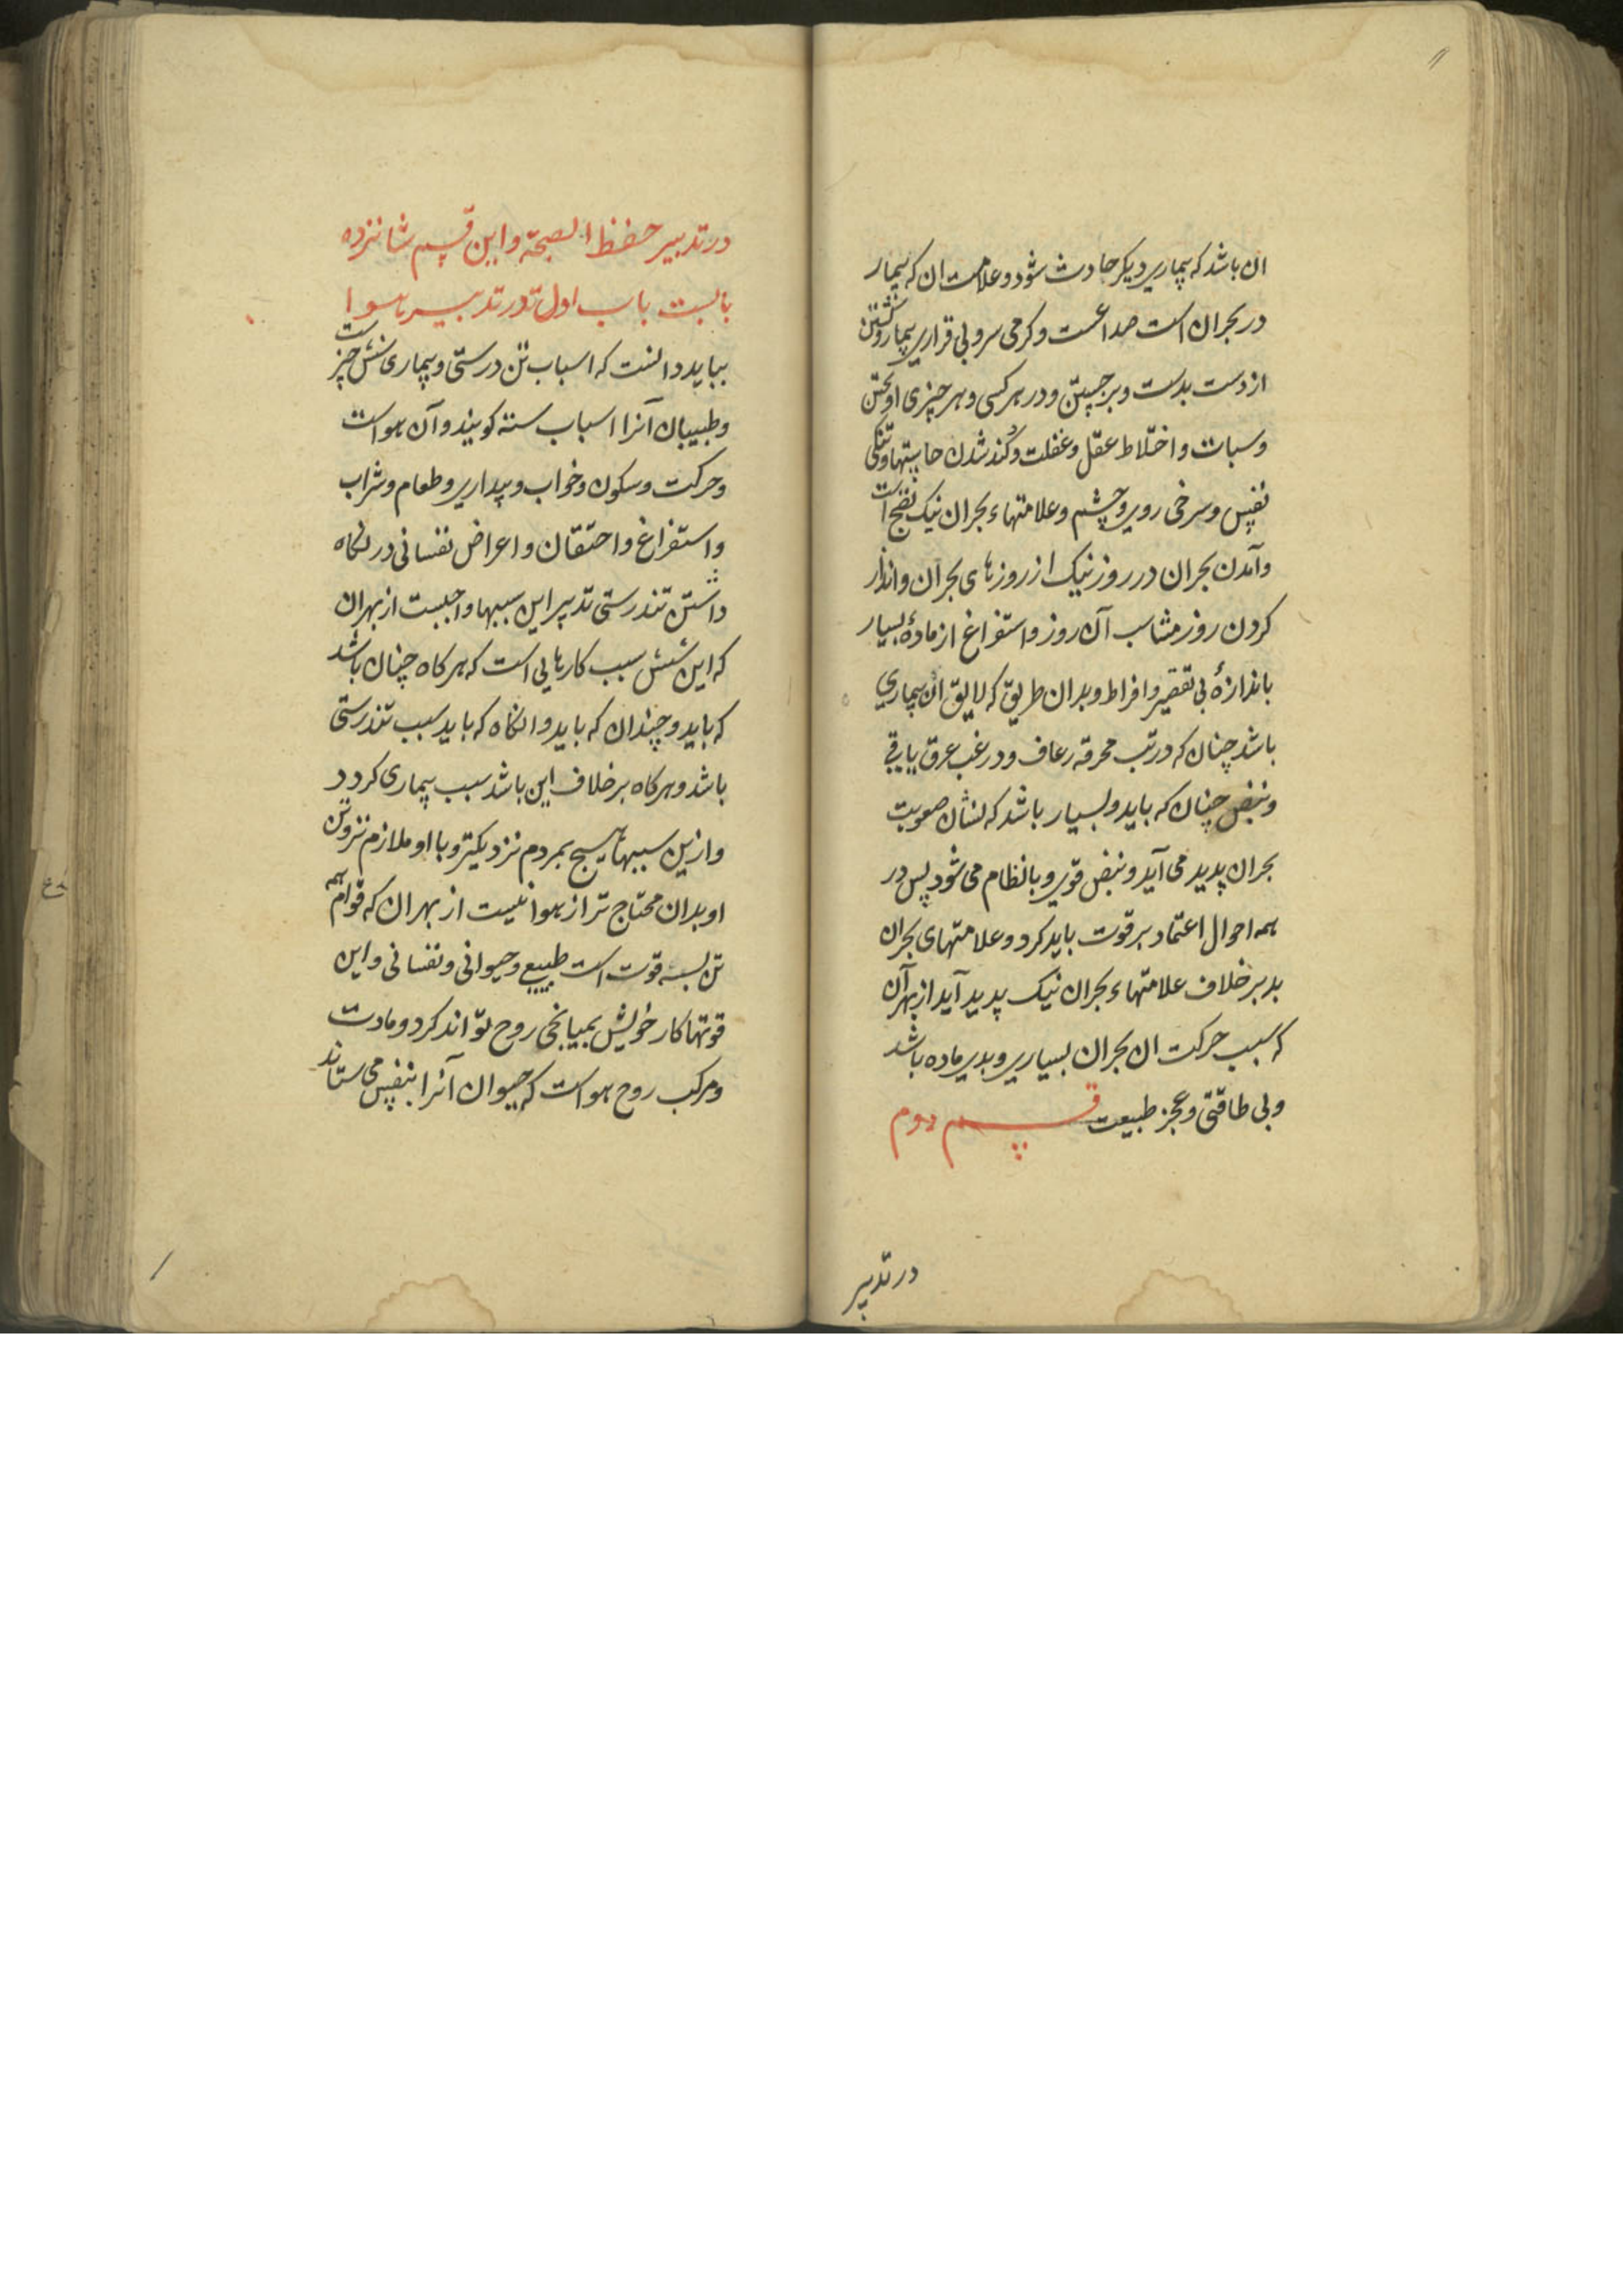 ان باشد که بیماری دیکر حادث شود و علامت ان که بیمار
در بحران است صداعست و کرمی سر و بی قراری بیمار و کشتن
از دست بدست و برجستن و در هر کسی و هر چیزی اویختن
و سبات و اختلاط عقل و غفلت و کُند شدن حاستها و تنکی
نفس و سرخی روی و چشم و علامتهاء بحران نیک نضج است
و آمدن بحران در روز نیک از روزهای بحران و انذار
کردن روز مناسب آن روز و استفراغ از مادهٔ بسیار
باندازهٔ بی تقصیر و افراط و بدان طریق که لایق ان بیماری
باشد چنان که در تب محرقه رعاف و در غب عرق یا قی
و نبض چنان که باید و بسیار باشد که نشان صعوبت
بحران پدید می آید و نبض قوی و بانظام می شود پس در
همه احوال اعتماد بر قوت باید کرد و علامتهای بحران
بد بر خلاف علامتهاء بحران نیک پدید آید از بهر آن
که سبب حرکت ان بحران بسیاری و بدی ماده باشد
و بی طاقتی و عجز طبیعت قسم دوم
در تدبیر
در تدبیر حفظ الصحة و این قسم شانزده
بابست باب اول در تدبیر هوا
بباید دانست که اسباب تن درستی و بیماری شش چیز است
و طبیبان آنرا اسباب سته کویند و آن هواست
و حرکت و سکون و خواب و بیداری و طعام و شراب
و استفراغ و احتقان و اعراض نفسانی در نکاه
داشتن تندرستی تدبیر این سببها واجبست از بهر ان
که این شش سبب کارهایی است که هر کاه چنان باشد
که باید و چندان که باید و انکاه که باید سبب تندرستی
باشد و هر کاه بر خلاف این باشد سبب بیماری کردد
و ازین سببها هیچ بمردم نزدیکتر و با او ملازم تر و تن
او بدان محتاج تر از هوا نیست از بهر ان که قوام همه
تن بسه قوت است طبیعی و حیوانی و نفسانی و این
قوتها کار خویش بمیانجی روح تواند کرد و مادت
و مرکب روح هواست که حیوان آنرا بنفس می ستاند